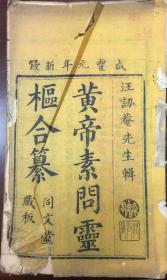 咸豐元年新鐫
汪訒菴先生輯
黃帝素問靈
樞合纂
同文堂
藏板